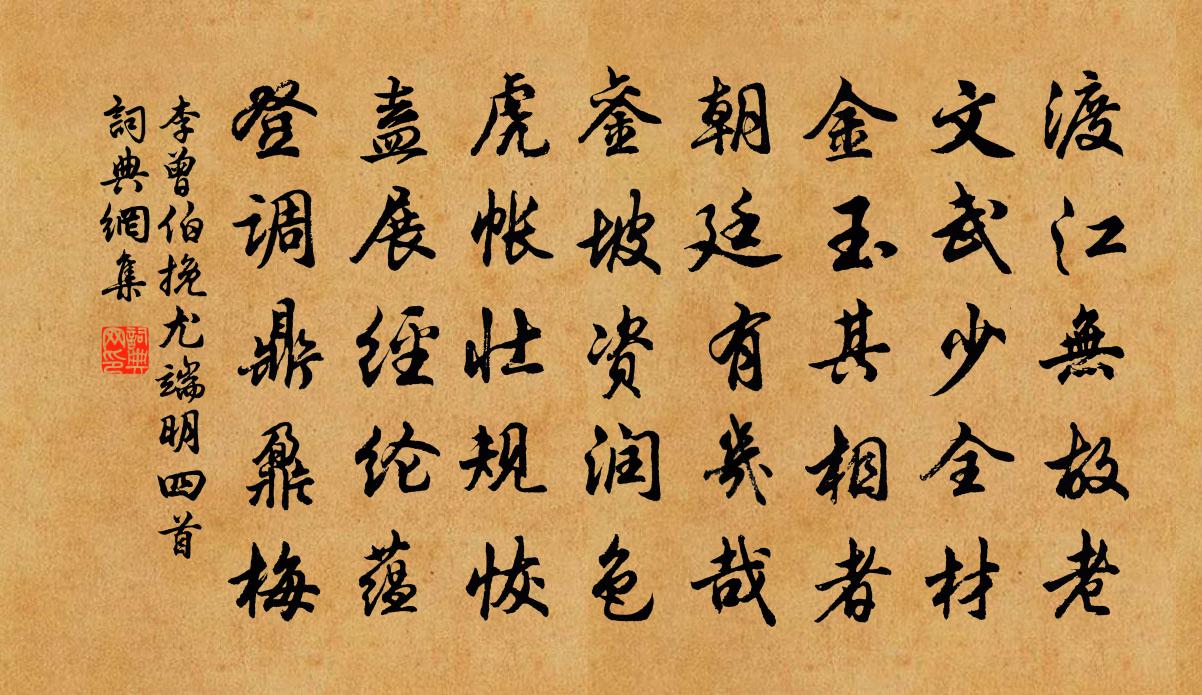 渡江無故老
文武少全材
金玉其相者
朝廷有幾哉
銮坡资润色
虎帐壮規恢
盍展經纶蕴
登调鼎鼐梅
李曾伯挽尤端明四首
詞典網集
詞典網印